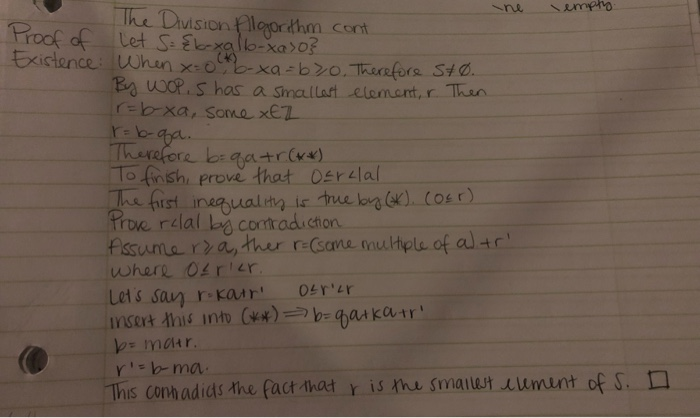 the empty
The Division Algorithm cont
Proof of Let S={b-xa|b-xa>0}
Existence: When x=0(*), b-xa=b≥0. Therefore S≠∅.
By WOP, S has a smallest element, r. Then
r=b-xa, some x∈Z
r=b-qa.
Therefore b=qa+r(**)
To finish, prove that 0≤r<|a|
The first inequality is true by (*). (0≤r)
Prove r<|a| by contradiction
Assume r≥a, then r=(some multiple of a)+r'
where 0≤r'<r.
Let's say r=ka+r' 0≤r'<r
insert this into (**)⟹b=qa+ka+r'
b=ma+r.
r'=b-ma.
This contradicts the fact that r is the smallest element of S. □